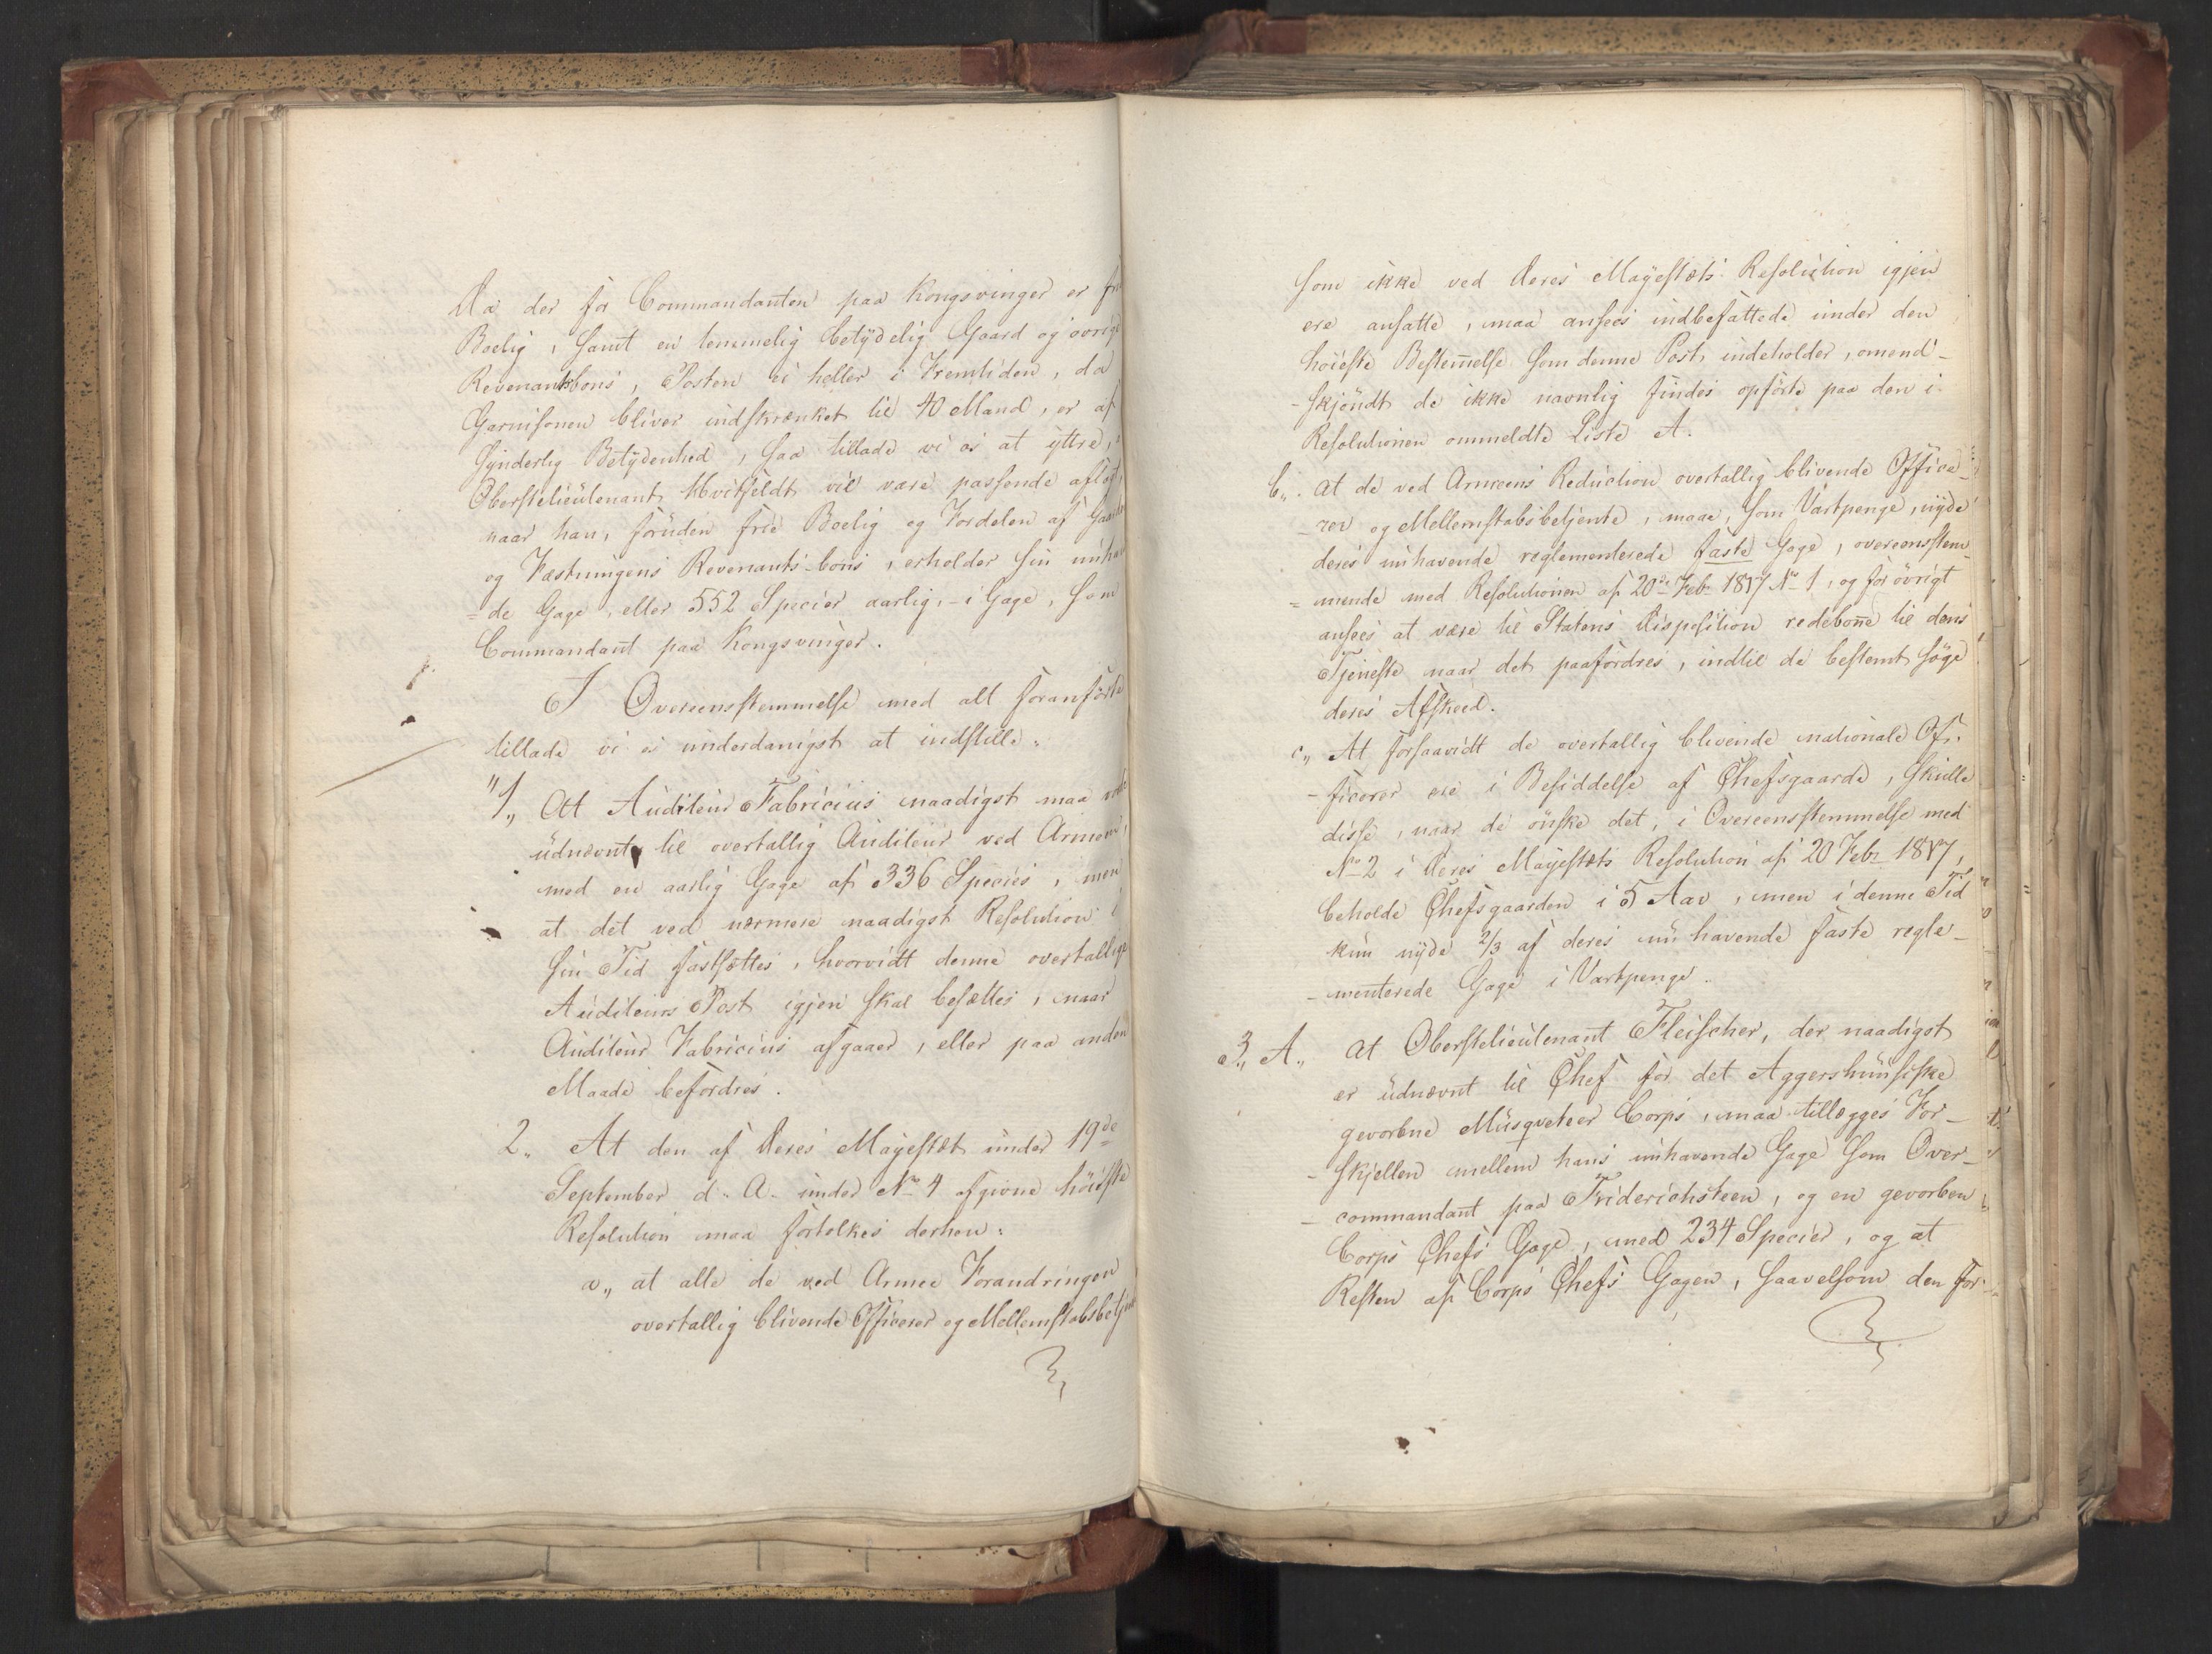 Da der for Commandanten paa Kongsvinger er fri
Boelig, samt en temmelig betÿdelig Gaard og øvrige
Revenantsboni, Posten ei heller i Fremtiden, da
Garnisonen bliver indskrænket til 40 Mand, er af
synderlig Betÿdenhed, saa tillade vi os at ÿttre,
Oberstelieutenant Hvitfeldt vil være passende aflagt,
naar han, foruden frie Boelig og Fordelen af Gaarden
og Fæstningens Revenants-boni, erholder sin nuhaven
=de Gage, eller 552 Species aarlig, i Gage, som
Commandant paa Kongsvinger.
I Overeensstemmelse med alt foranførte
tillade vi os underdanigst at indstille:
"1,, At Auditeur Fabricius naadigst maa vorde
udnævnt til overtallig Auditeur ved Armeen,
med en aarlig Gage af 336 Species, men
at det ved nærmere naadigst Resolution i
sin Tid fastsættes, hvorvidt denne overtallige
Auditeurs Post igjen skal besættes, naar
Auditeur Fabricius afgaaer, eller paa anden
Maade befordres.
2,, At den af Deres Majestæt under 19de
September d. A. under No 4 afgivne høieste
Resolution maa fortolkes derhen:
a,, at alle de ved Armee Forandringen
overtallig blivende Officerer og Mellemstabsbetjente
som ikke ved Deres Mayestæts Resolution igjen
ere ansatte, maa ansees indbefattede under den
høieste Bestem̅else som denne Post indeholder, omend-
-skjøndt de ikke navnlig findes opførte paa den i
Resolutionen ommeldte Liste A.
b,, at de ved Armeens Reduction overtallig blivende Office-
-rer og Mellemstabsbetjente, maae, som Vartpenge, nÿde
deres nuhavende reglementerede faste Gage, overeensstem-
=mende med Resolutionen af 20de Febr 1817 No 1, og for øvrigt
ansees at være til Statens Disposition redebon̅e til dens
Tjeneste naar det paafordres, indtil de bestemt søge
deres Afskeed.
c,, At forsaavidt de overtallig blivende nationale Of-
-ficerer ere i Besiddelse af Chefsgaarde, skulle
disse, naar de ønske det, i Overeensstemmelse med
No 2 i Deres Mayestæts Resolution af 20 Febr 1817,
beholde Chefsgaarden i 5 Aar, men i denne Tid
kun nÿde 2/3 af deres nu havende faste regle-
-menterede Gage i Vartpenge.
3,, A,, at Oberstelieutenant Fleischer, der naadigst
er udnævnt til Chef for det Aggershuusiske
gevorbne Musqveteer Corps, maa tillægges For-
-skjellen mellem hans nuhavende Gage som Over-
-commandant paa Friderichsteen, og en gevorben
Corps Chefs Gage, med 234 Species, og at
Resten af Corps Chefs Gagen, saavelsom den for-